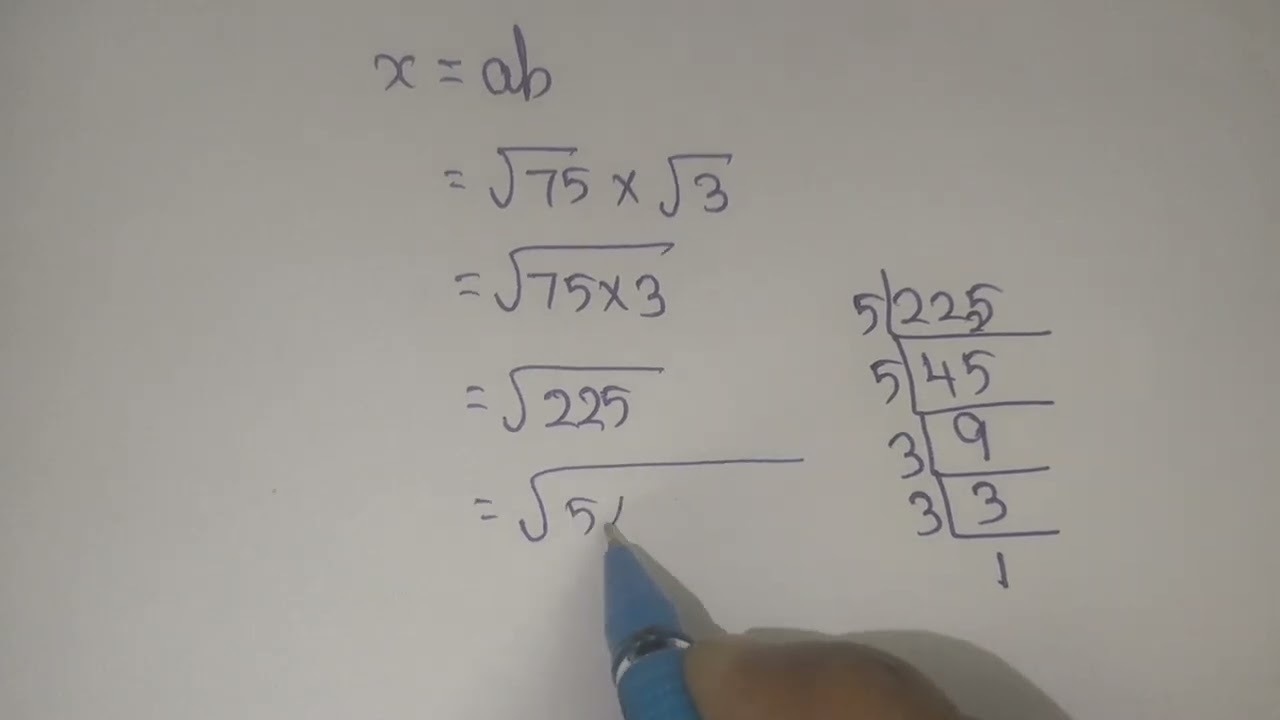 x = ab
= √75 × √3
= √75×3
= √225
= √5
5 225
5 45
3 9
3 3
1